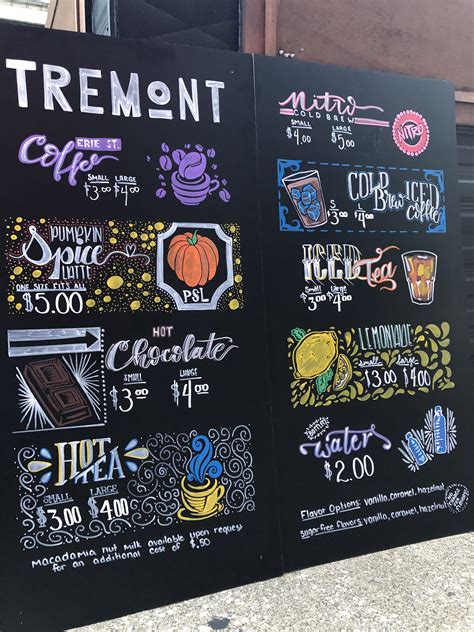 TREMONT
ERIE ST.
Coffee
SMALL LARGE
$3.00 $4.00
PUMPKIN
Spice
LATTE
ONE SIZE FITS ALL
$5.00
PSL
HOT
Chocolate
SMALL LARGE
$3.00 $4.00
HOT
TEA
SMALL LARGE
$3.00 $4.00
Macadamia nut milk available upon request
for an additional cost of $.50
Nitro
COLD BREW
SMALL LARGE
$4.00 $5.00
NITRO
COLD
Brew ICED
coffee
S L
$3.00 $4.00
ICED Tea
Small Large
$3.00 $4.00
LEMONADE
small large
$3.00 $4.00
water
$2.00
Flavor Options: vanilla, caramel, hazelnut
sugar free flavors: vanilla, caramel, hazelnut